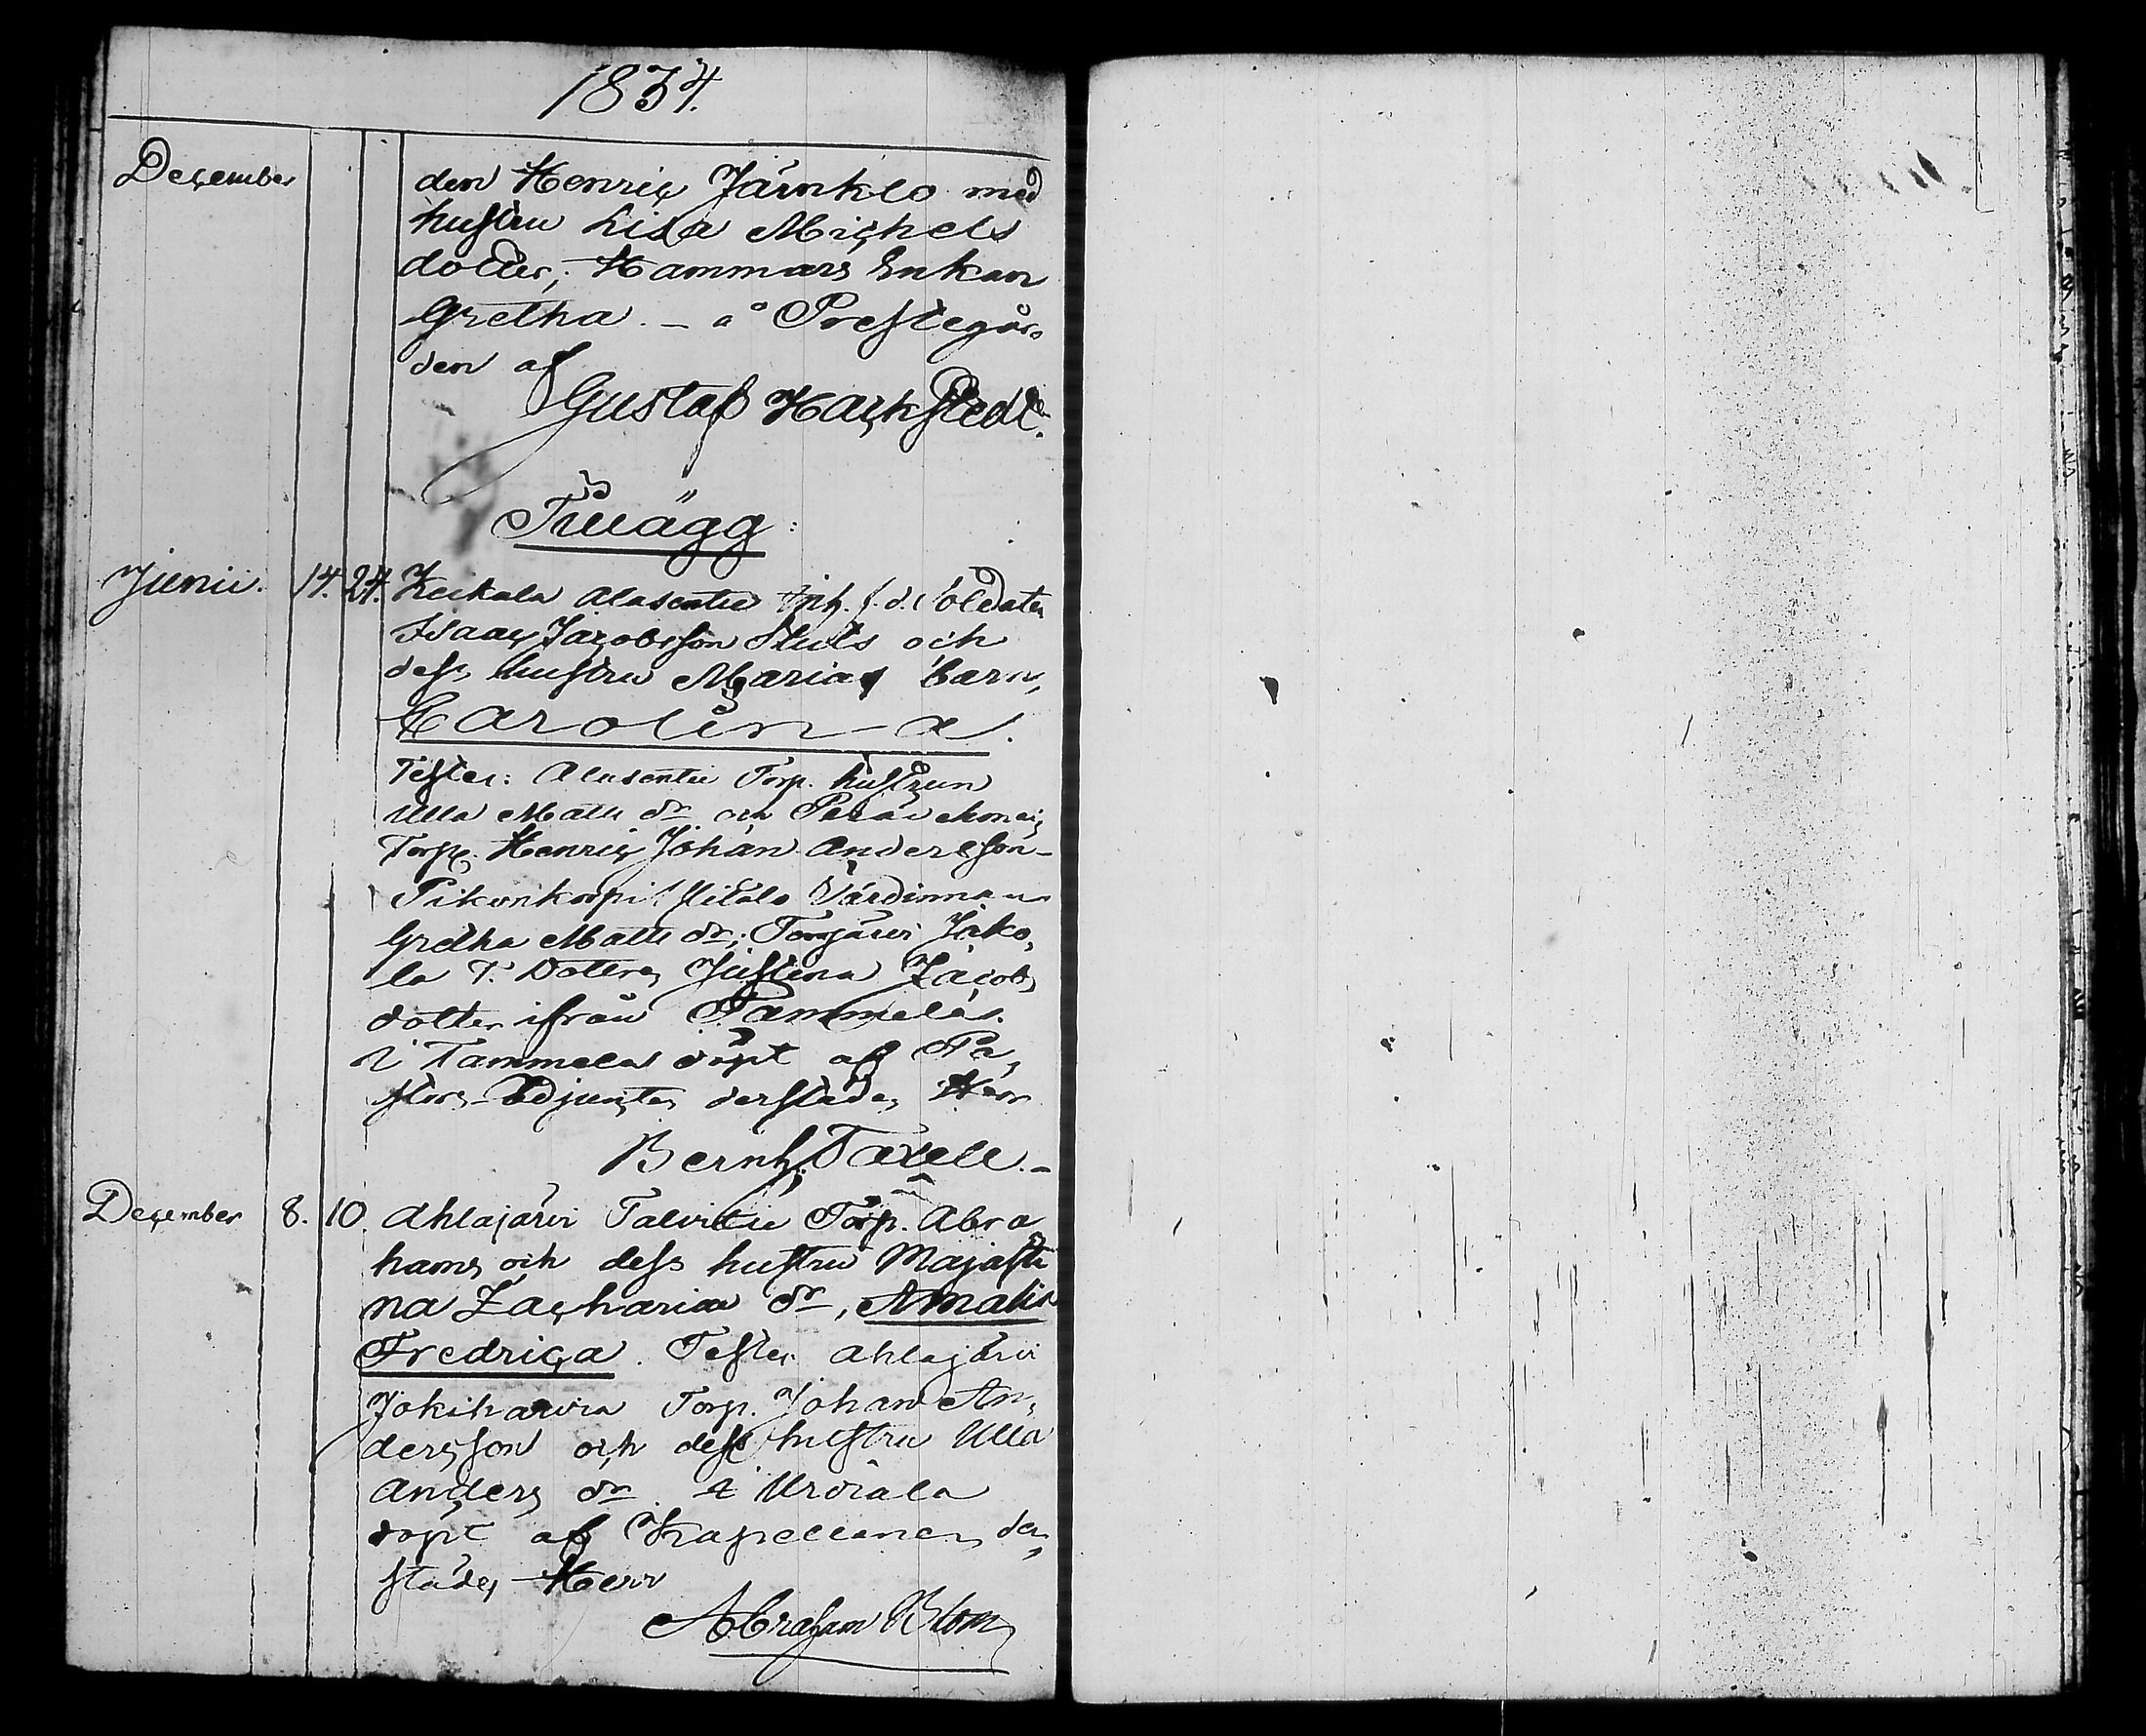 1834.
December
den Henric Järnklo med
hustru Lisa Michels
dotter; Hammars Enkan
Gretha. — å Prestegår
den af
Gustaf Hackstedt.
Tillägg:
Junii. 14. 24. Keikala Alasentie Inh. f.d. Soldaten
Isaac Jacobsson Stuts och
dess hustru Marias barn,
Carolina.
Testes: Alasentie Torp. hustrun
Ulla Matts dr och
Torp. Henric Johan Andersson
Pikonkorpi Ylitalo Värdinnan
Gretha Matts dr; Torrjärvi Jako,
la T. Dotter Justina Jacobs
dotter ifrån Tammela.
i Tammela döpt af Pa,
stors Adjuncten derstädes Herr
Bernh. Taxell. —
December 8. 10. Ahlajärvi Talvitie Torp. Abra
hams och dess hustru Majasti
na Zacharie dr, Amalia
Fredrica. Testes Ahlajärvi
Jokiharvia Torp. Johan An,
dersson och dess hustru Ulla
Anders dr. i Urdiala
döpt af Kapellanen der,
städes Herr
Abraham Blom